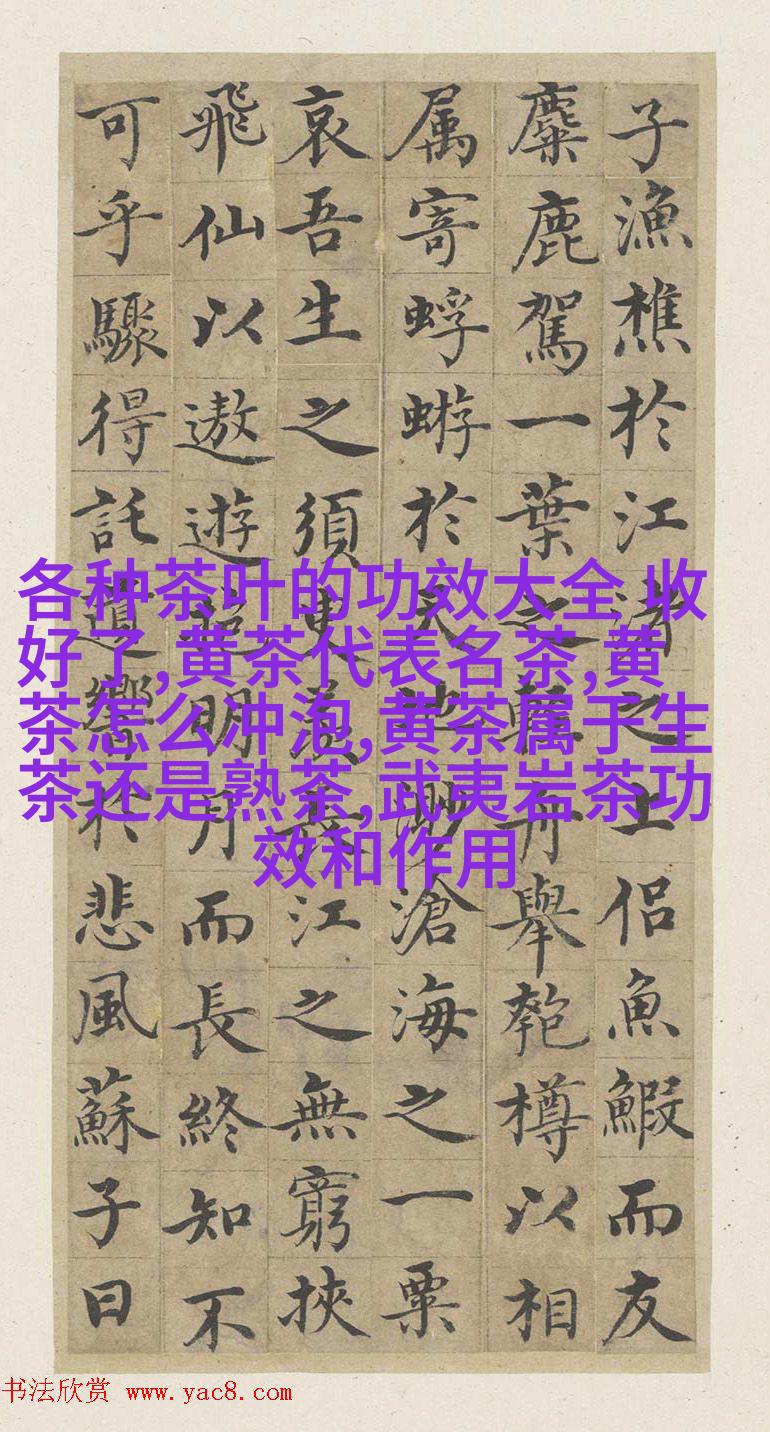 子漁樵於江渚之上侶魚鰕而友
麋鹿駕一葉之輕舟舉匏樽以相
属寄蜉蝣於天地渺滄海之一粟
哀吾生之須臾羨長江之無窮挾
飛仙以遨遊抱明月而長終知不
可乎驟得託遺響於悲風蘇子曰
各种茶叶的功效大全,收
好了,黄茶代表名茶,黄
茶怎么冲泡,黄茶属于生
茶还是熟茶,武夷岩茶功
效和作用
书法欣赏 www.yac8.com